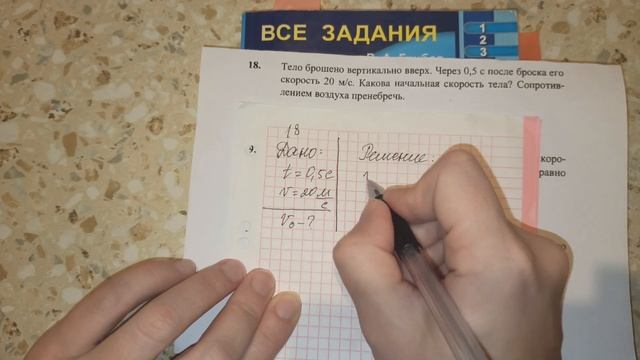 ВСЕ ЗАДАНИЯ
1
2
3
18. Тело брошено вертикально вверх. Через 0,5 с после броска его
скорость 20 м/с. Какова начальная скорость тела? Сопротив-
лением воздуха пренебречь.
18
9.
Дано:
Решение:
коро-
t = 0,5с
равно
v = 20 м/с
V₀ - ?